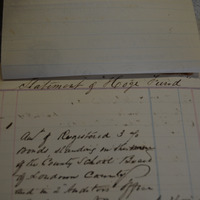 Statement of Hoge Fund
Amt of Registered 3 %
Bonds Standing in the name
of the County School Board
of Loudoun County
and in 2 Auditor's Office